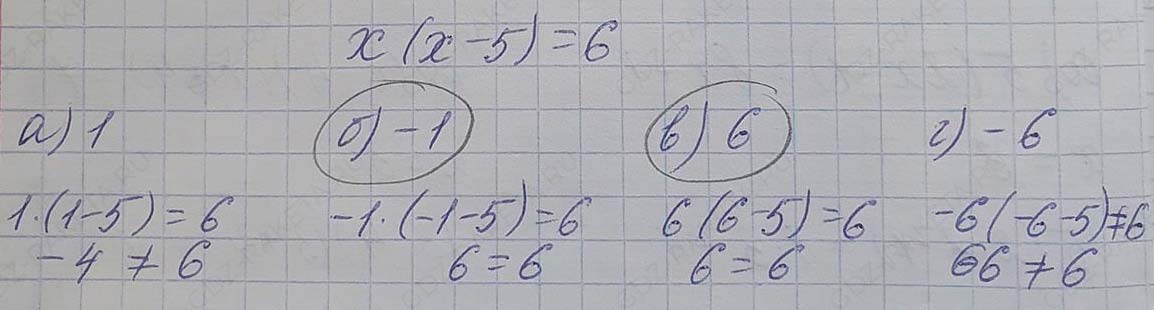 x(x-5)=6
а) 1 б) -1 в) 6 г) -6
1·(1-5)=6 -1·(-1-5)=6 6(6-5)=6 -6(-6-5)≠6
-4≠6 6=6 6=6 66≠6